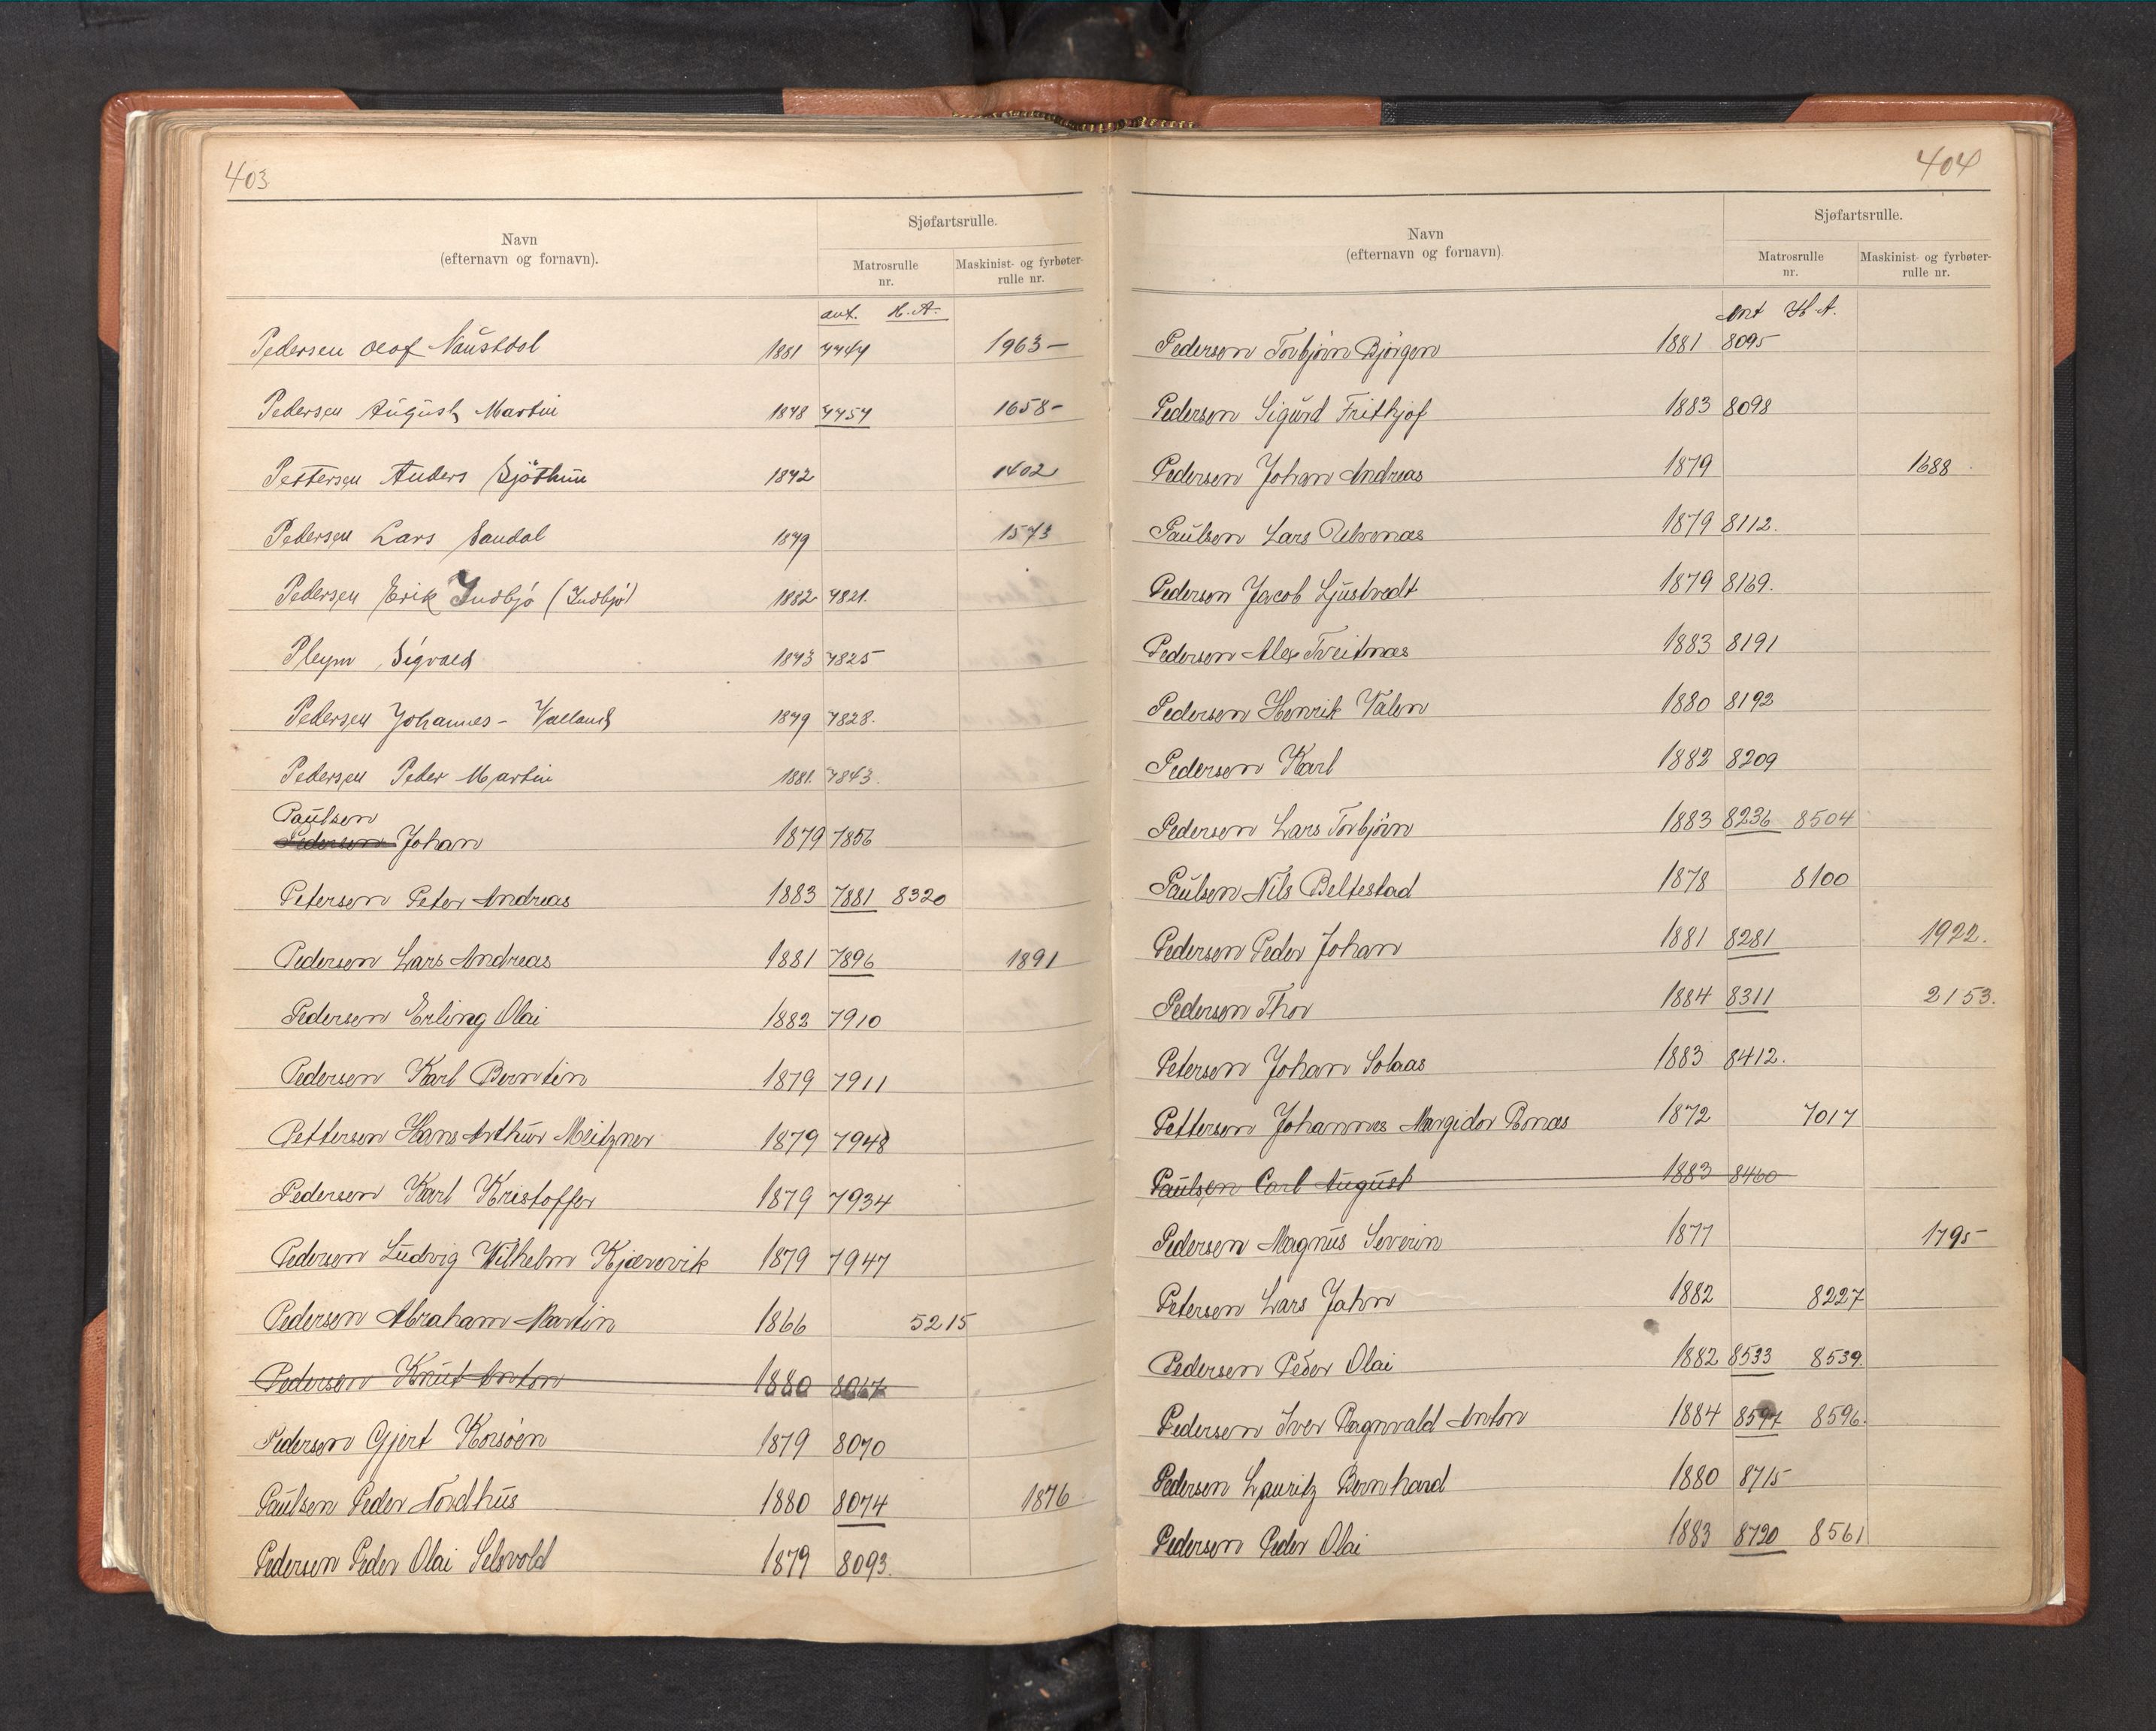 403
Navn
(efternavn og fornavn).
Sjøfartsrulle.
Matrosrulle
nr.
Maskinist- og fyrbøter-
rulle nr.
ant. H. A.
Pedersen Olof Naustdal 1881 7747 1963 —
Pedersen August Martin 1878 7757 1658 -
Pettersen Anders Sjöthun 1872 1402
Pedersen Lars Sandal 1879 1573
Pedersen Erik Indbjö (Indbjö) 1882 7821.
Pleym Sigvald 1873 7825
Pedersen Johannes - Valland 1879 7828.
Pedersen Peder Martin 1881. 7843.
Paulsen
Pedersen Johan 1879 7856
Petersen Peter Andreas 1883 7881 8320
Pedersen Lars Andreas 1881 7896 1891
Pedersen Erling Olai 1882 7910
Pedersen Karl Berntin 1879 7911
Pettersen Hans Arthur Meitzner 1879 7948
Pedersen Karl Kristoffer 1879 7934
Pedersen Ludvig Wilhelm Kjærevik 1879 7947
Pedersen Abraham Martin 1866 5215
Pedersen Knut Anton 1880 8067
Pedersen Gjert Korsöen 1879 8070
Paulsen Peder Nordhus 1880 8074 1876
Pedersen Peder Olai Selsvold 1879 8093.
404
Navn
(efternavn og fornavn)
Sjøfartsrulle.
Matrosrulle
nr.
Maskinist- og fyrbøter-
rulle nr.
Ant H A.
Pedersen Torbjörn Björgen 1881 8095
Pedersen Sigurd Frithjof 1883 8098
Pedersen Johan Andreas 1879 1688
Paulsen Lars Ulvenæs 1879 8112.
Pedersen Jacob Ljustvedt 1879 8169.
Pedersen Alex Tveitnæs 1883 8191
Pedersen Henrik Valen 1880 8192
Pedersen Karl 1882 8209
Pedersen Lars Torbjörn 1883 8236 8504
Paulsen Nils Beltestad 1878 8100
Pedersen Peder Johan 1881 8281 1922.
Pedersen Thor 1884 8311 2153.
Petersen Johan Solaas 1883 8412.
Pettersen Johannes Margidor Bonæs 1872 7017
Paulsen Carl August 1883 8460
Pedersen Magnus Severin 1877 1795
Petersen Lars Jahn 1882 8227
Pedersen Peder Olai 1882 8533 8539.
Pedersen Iver Ragnvald Anton 1884 8597 8596.
Pedersen Lauritz Bernhard 1880 8715
Pedersen Peder Olai 1883 8720 8561